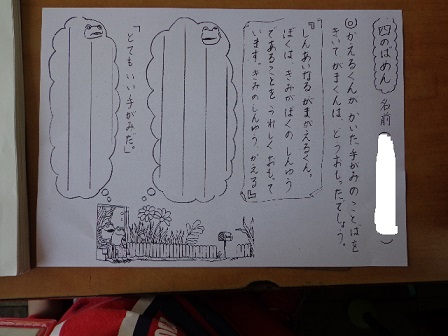 四のばめん 名前( )
◎かえるくんが かいた手がみの ことばを
きいてがまくんは、どうおもったでしょう。
『しんあいなる がまがえるくん。
ぼくは、きみがぼくの しんゆう
であることを うれしく おもって
います。きみの しんゆう、かえる』
「とても いい 手がみだ。」